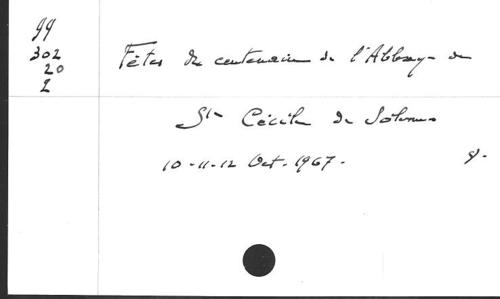 99
302
20
2
Fêtes du centenaire de l'Abbaye de
Ste Cécile de Solesmes
10-11-12 Oct. 1967.